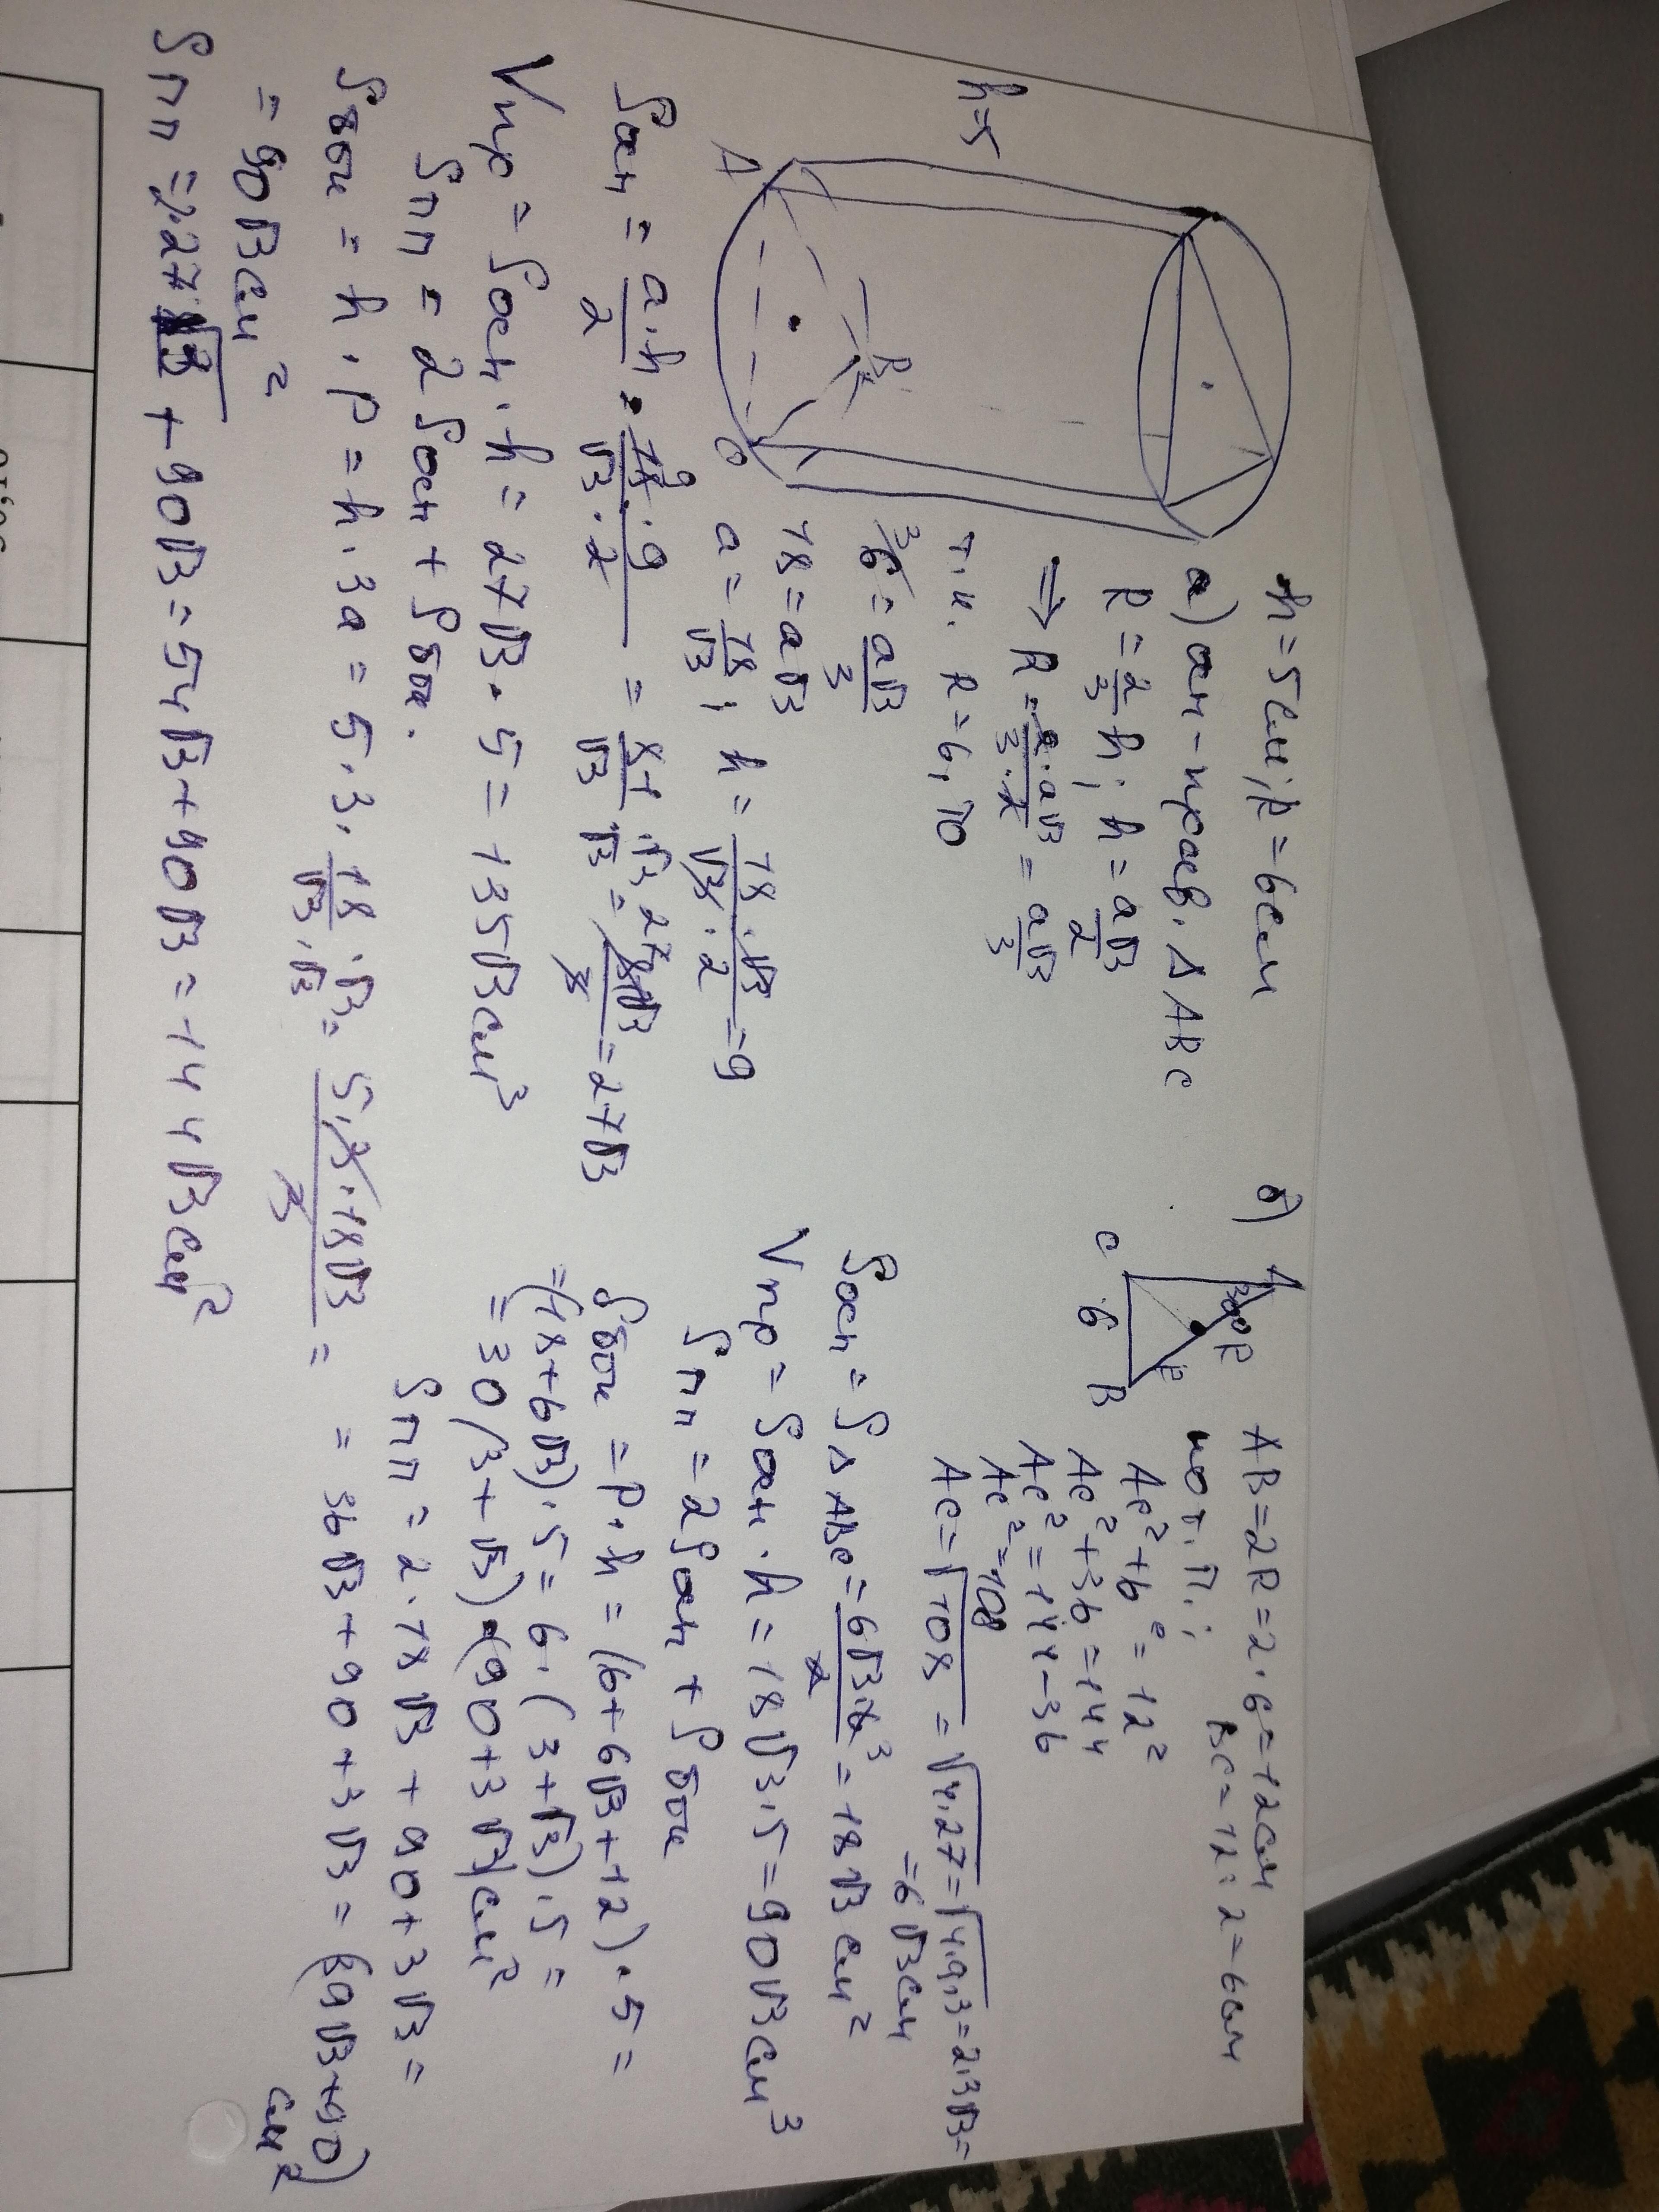 h=5см; R=6см
а) осн-прав. Δ ABC
R=2/3 h; h=a√3/2
⇒ R=2·a√3/3·2=a√3/3
т.к. R=6, то
6=a√3/3
18=a√3
a=18/√3; h=18·√3/√3·2=9
h=5
A
B
C
Sосн=a·h/2=18·9/√3·2=81/√3·√3/√3=81√3/3=27√3
Vпр=Sосн·h=27√3·5=135√3см³
Sпп=2Sосн+Sбок.
Sбок=h·P=h·3a=5·3·18/√3·√3/√3=5·3·18√3/3=
=90√3см²
Sпп=2·27√3+90√3=54√3+90√3=144√3см²
б)
A
30°
R
R
C
6
B
AB=2R=2·6=12см
BC=12:2=6см
по т. П.:
AC²+6²=12²
AC²+36=144
AC²=144-36
AC²=108
AC=√108=√4·27=√4·9·3=2·3√3=
=6√3см
Sосн=SΔABC=6√3·6/2=18√3см²
Vпр=Sосн·h=18√3·5=90√3см³
Sпп=2Sосн+Sбок
Sбок=P·h=(6+6√3+12)·5=
=(18+6√3)·5=6·(3+√3)·5=
=30(3+√3)=(90+3√3)см²
Sпп=2·18√3+90+3√3=
=36√3+90+3√3=(69√3+90)
см²